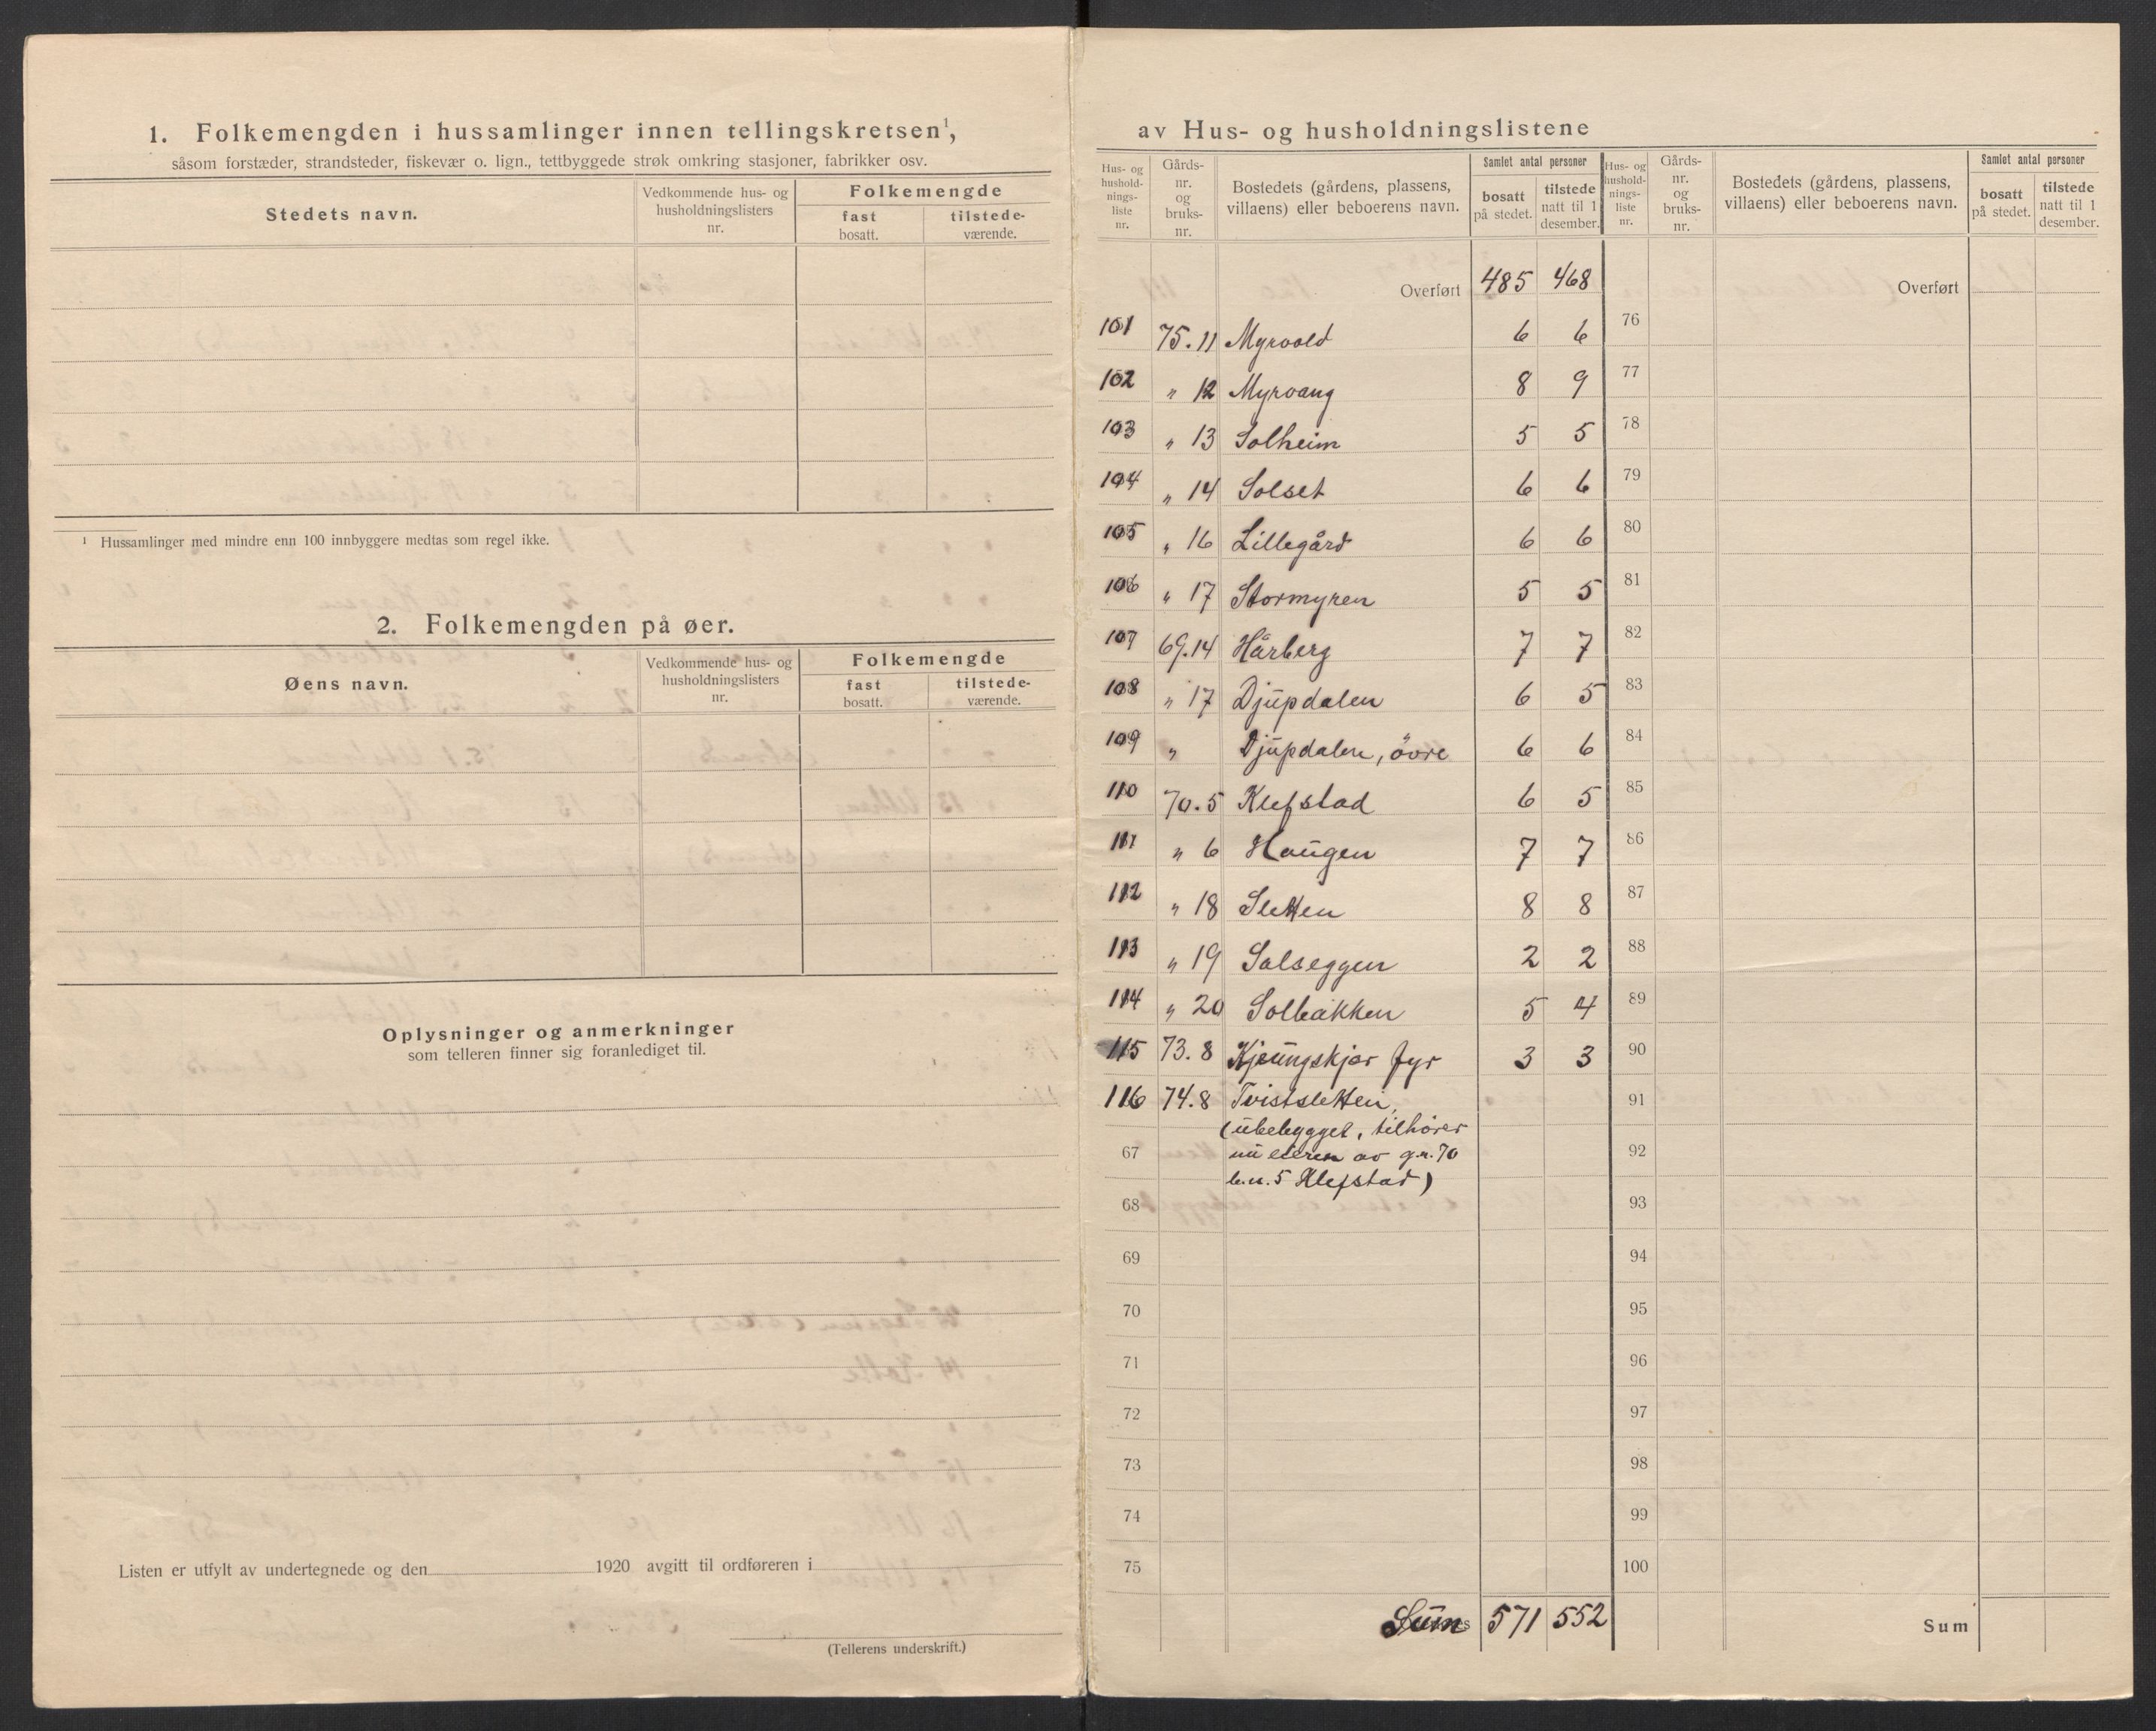 1. Folkemengden i hussamlinger innen tellingskretsen¹,
såsom forstæder, strandsteder, fiskevær o. lign., tettbyggede strøk omkring stasjoner, fabrikker osv.
Stedets navn.
Vedkommende hus- og husholdningslisters nr.
Folkemengde
fast bosatt.
tilstede-værende.
¹ Hussamlinger med mindre enn 100 innbyggere medtas som regel ikke.
2. Folkemengden på øer.
Øens navn.
Vedkommende hus- og husholdningslisters nr.
Folkemengde
fast bosatt.
tilstede-værende.
Oplysninger og anmerkninger
som telleren finner sig foranlediget til.
Listen er utfylt av undertegnede og den 1920 avgitt til ordføreren i
(Tellerens underskrift.)
av Hus- og husholdningslistene
Hus- og hushold-nings-liste nr.
Gårds-nr. og bruks-nr.
Bostedets (gårdens, plassens, villaens) eller beboerens navn.
Samlet antal personer
bosatt på stedet.
tilstede natt til 1 desember.
Hus- og hushold-nings-liste nr.
Gårds-nr. og bruks-nr.
Bostedets (gårdens, plassens, villaens) eller beboerens navn.
Samlet antal personer
bosatt på stedet.
tilstede natt til 1 desember.
Overført 485 468 Overført
101 75.11 Myrvold 6 6 76
102 " 12 Myrvang 8 9 77
103 " 13 Solheim 5 5 78
104 " 14 Solset 6 6 79
105 " 16 Lillegård 6 6 80
106 " 17 Stormyren 5 5 81
107 69.14 Hårberg 7 7 82
108 " 17 Djupdalen 6 5 83
109 " Djupdalen, övre 6 6 84
110 70.5 Klefstad 6 5 85
111 " 6 Haugen 7 7 86
112 " 18 Sletten 8 8 87
113 " 19 Solseggen 2 2 88
114 " 20 Solbakken 5 4 89
115 73.8 Kjeungskjær fyr 3 3 90
116 74.8 Tvistsletten, 91
(ubebygget, tilhører
67 nu eieren av g.n. 70 92
b.n. 5 Klefstad)
68 93
69 94
70 95
71 96
72 97
73 98
74 99
75 100
Sum 571 552 Sum